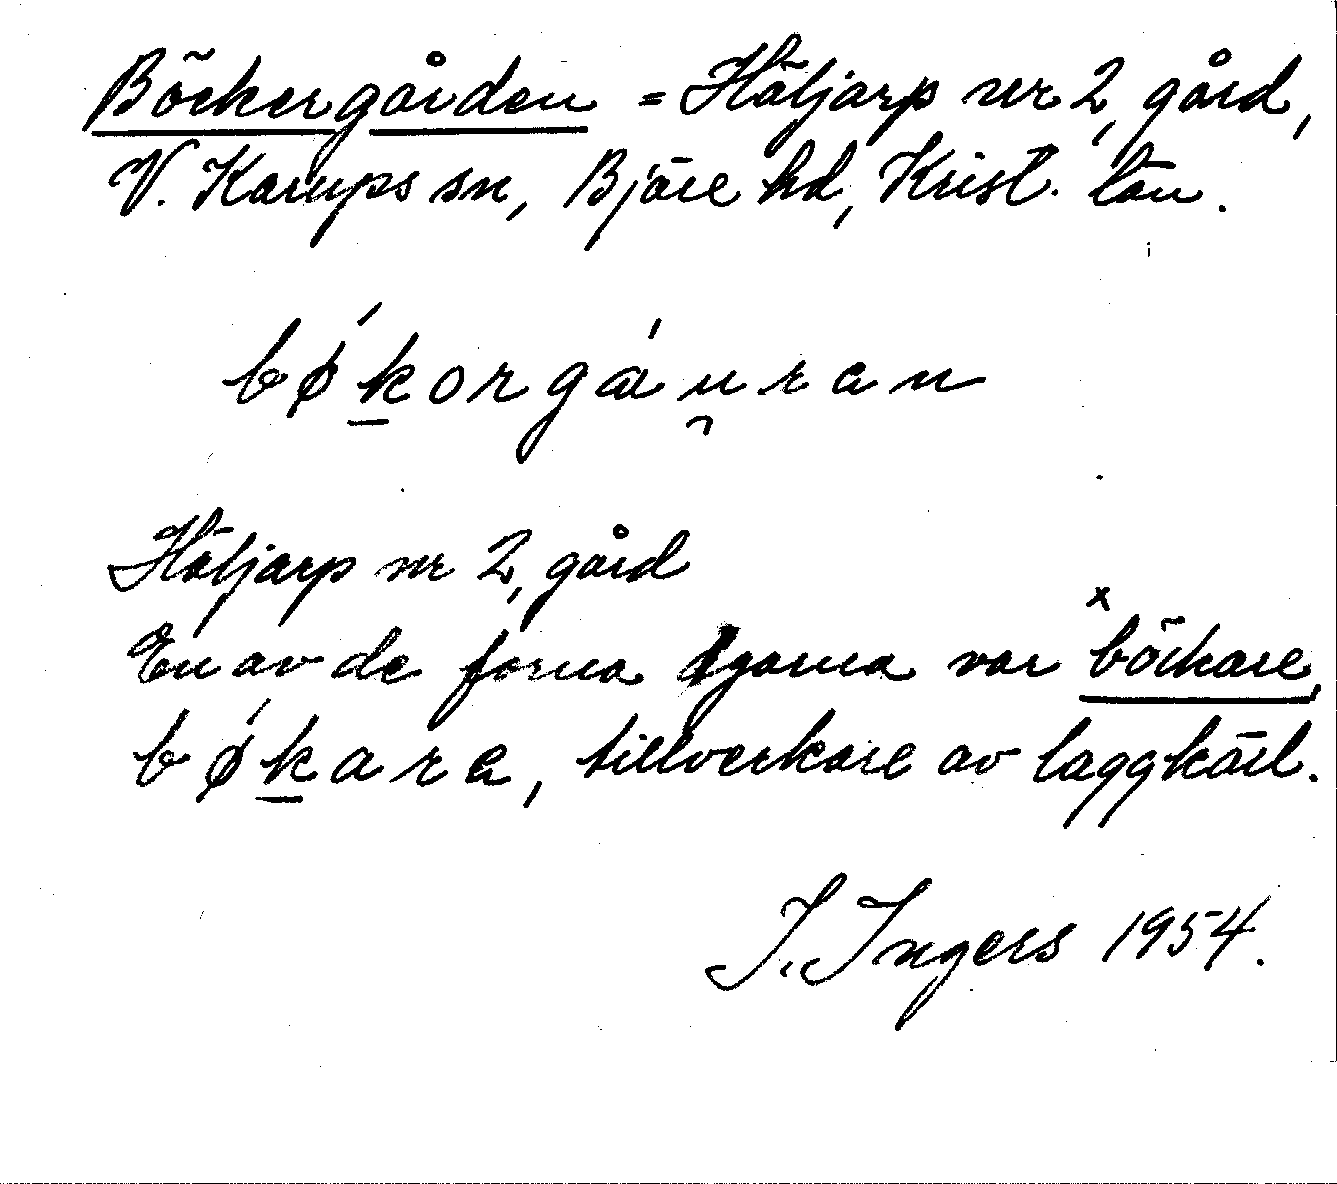 Böckergården = Häljarp nr 2, gård,
V. Karups sn, Bjäre hd, Krist. län.
bǿkorgáu̯ran
Häljarp nr 2, gård
En av de forna ägarna var ˣböckare,
bǿkara, tillverkare av laggkärl.
I. Ingers 1954.